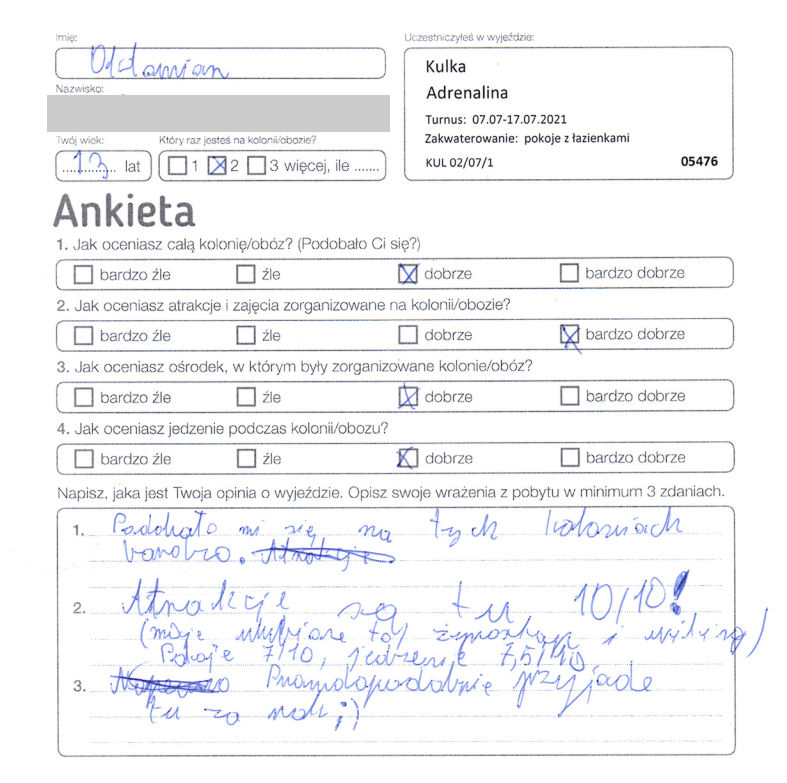 Imię:
Uczestniczyłeś w wyjeździe:
Kulka
Nazwisko:
Adrenalina
Turnus: 07.07-17.07.2021
Twój wiek:
Który raz jesteś na kolonii/obozie?
Zakwaterowanie: pokoje z łazienkami
13 lat
1 2 3 więcej, ile .......
KUL 02/07/1 05476
Ankieta
1. Jak oceniasz całą kolonię/obóz? (Podobało Ci się?)
bardzo źle źle dobrze bardzo dobrze
2. Jak oceniasz atrakcje i zajęcia zorganizowane na kolonii/obozie?
bardzo źle źle dobrze bardzo dobrze
3. Jak oceniasz ośrodek, w którym były zorganizowane kolonie/obóz?
bardzo źle źle dobrze bardzo dobrze
4. Jak oceniasz jedzenie podczas kolonii/obozu?
bardzo źle źle dobrze bardzo dobrze
Napisz, jaka jest Twoja opinia o wyjeździe. Opisz swoje wrażenia z pobytu w minimum 3 zdaniach.
1. Podobało mi się na tych koloniach
bardzo. Atrakcje
2. Atrakcje są tu 10/10!
(moje ulubione to i wiking)
Pokoje 7/10, jedzenie 7,5/10
3. Prawdopodobnie przyjade
tu za rok ;)